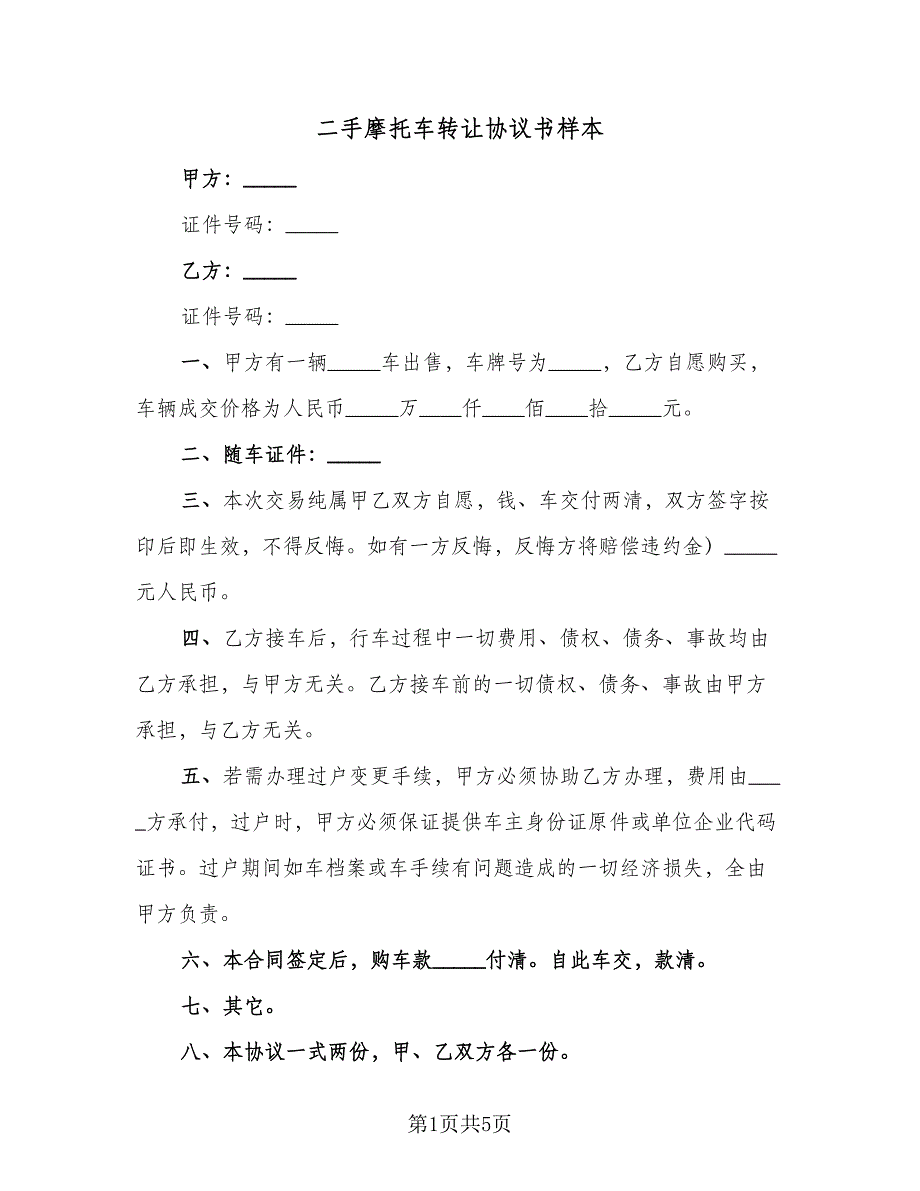 二手摩托车转让协议书样本
甲方：_____
证件号码：_____
乙方：_____
证件号码：_____
一、甲方有一辆_____车出售，车牌号为_____，乙方自愿购买，
车辆成交价格为人民币_____万____仟____佰____拾_____元。
二、随车证件：_____
三、本次交易纯属甲乙双方自愿，钱、车交付两清，双方签字按
印后即生效，不得反悔。如有一方反悔，反悔方将赔偿违约金）_____
元人民币。
四、乙方接车后，行车过程中一切费用、债权、债务、事故均由
乙方承担，与甲方无关。乙方接车前的一切债权、债务、事故由甲方
承担，与乙方无关。
五、若需办理过户变更手续，甲方必须协助乙方办理，费用由____
_方承付，过户时，甲方必须保证提供车主身份证原件或单位企业代码
证书。过户期间如车档案或车手续有问题造成的一切经济损失，全由
甲方负责。
六、本合同签定后，购车款_____付清。自此车交，款清。
七、其它。
八、本协议一式两份，甲、乙双方各一份。
第1页共5页